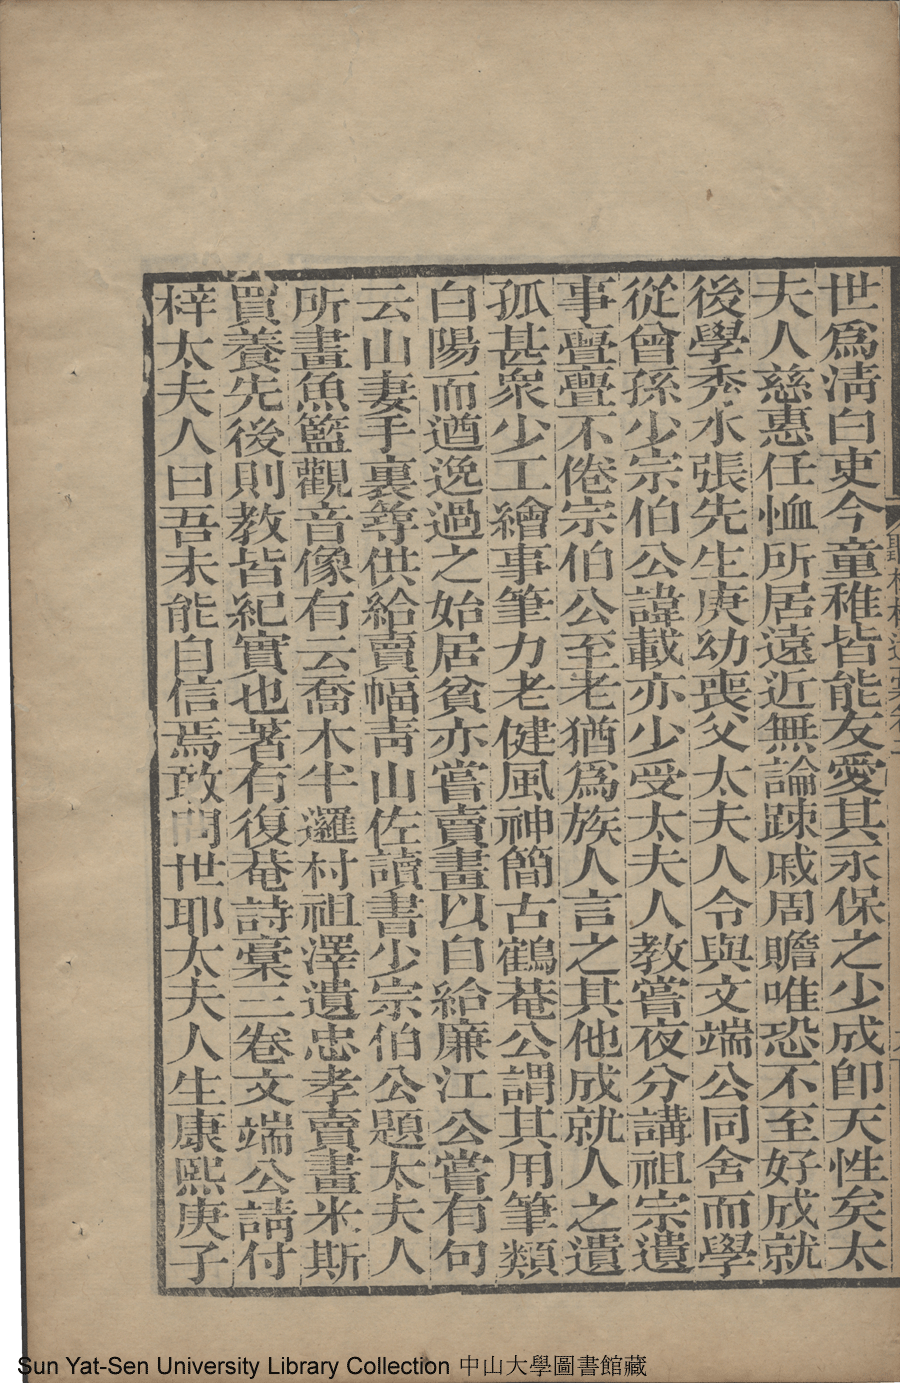 世爲淸白吏今童稚皆能友愛其永保之少成卽天性矣太
夫人慈惠任恤所居遠近無論踈戚周贍唯恐不至好成就
後學秀水張先生庚幼喪父太夫人令與文端公同舍而學
從曾孫少宗伯公諱載亦少受太夫人敎嘗夜分講祖宗遺
事亹亹不倦宗伯公至老猶爲族人言之其他成就人之遺
孤甚衆少工繪事筆力老健風神簡古鶴菴公謂其用筆類
白陽而遒逸過之始居貧亦嘗賣畫以自給廉江公嘗有句
云山妻手裏等供給賣幅靑山佐讀書少宗伯公題太夫人
所畫魚籃觀音像有云喬木半邏村祖澤遺忠孝賣畫米斯
買養先後則敎皆紀實也著有復菴詩稾三卷文端公請付
梓太夫人曰吾未能自信焉敢問世耶太夫人生康熙庚子
Sun Yat-Sen University Library Collection 中山大學圖書館藏